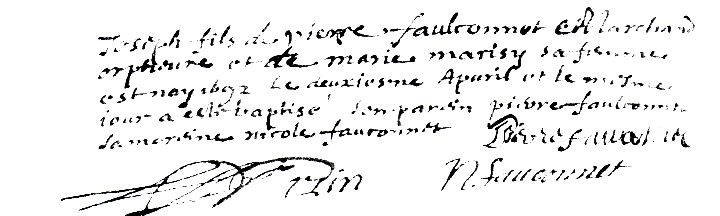 Joseph fils de pierre faulconnet Marchand
orpheure et de marie marisy sa femme
est nay 1692 Le deuxiesme Apuril et le mesme
iour a esté baptisé son parein pierre faulconnet
sa mareine nicole fauconnet Pierre fauconnet
N fauconnet